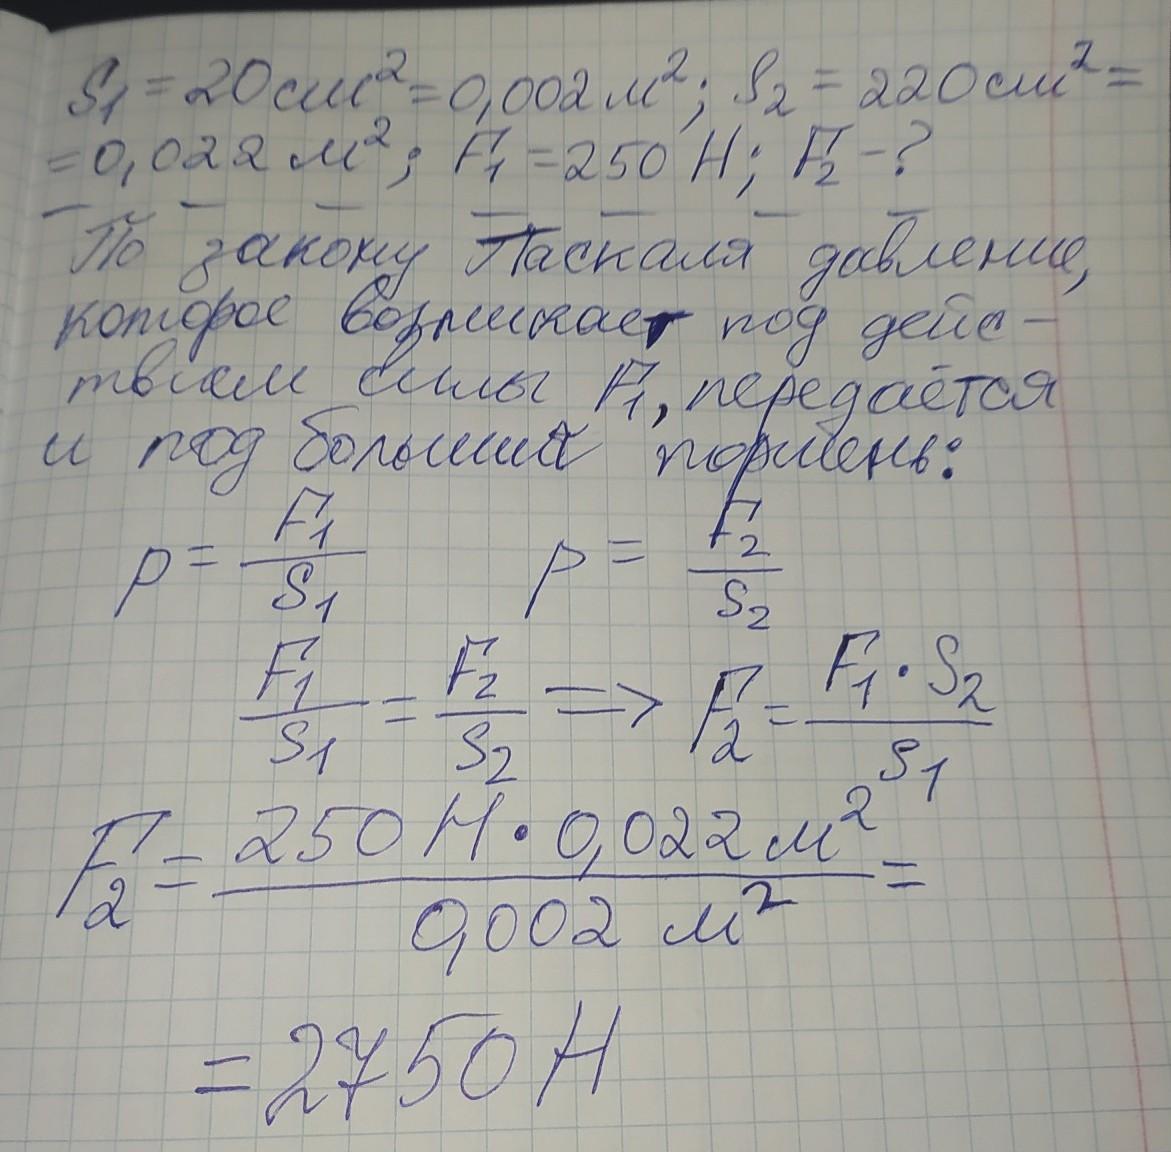 S₁ = 20 см² = 0,002 м²; S₂ = 220 см² =
= 0,022 м²; F₁ = 250 Н; F₂ - ?
По закону Паскаля давление,
которое возникает под дейс-
твием силы F₁, передаётся
и под больший поршень:
p = F₁/S₁ p = F₂/S₂
F₁/S₁ = F₂/S₂ => F₂ = F₁ · S₂/S₁
F₂ = 250 Н · 0,022 м²/0,002 м² =
= 2750 Н